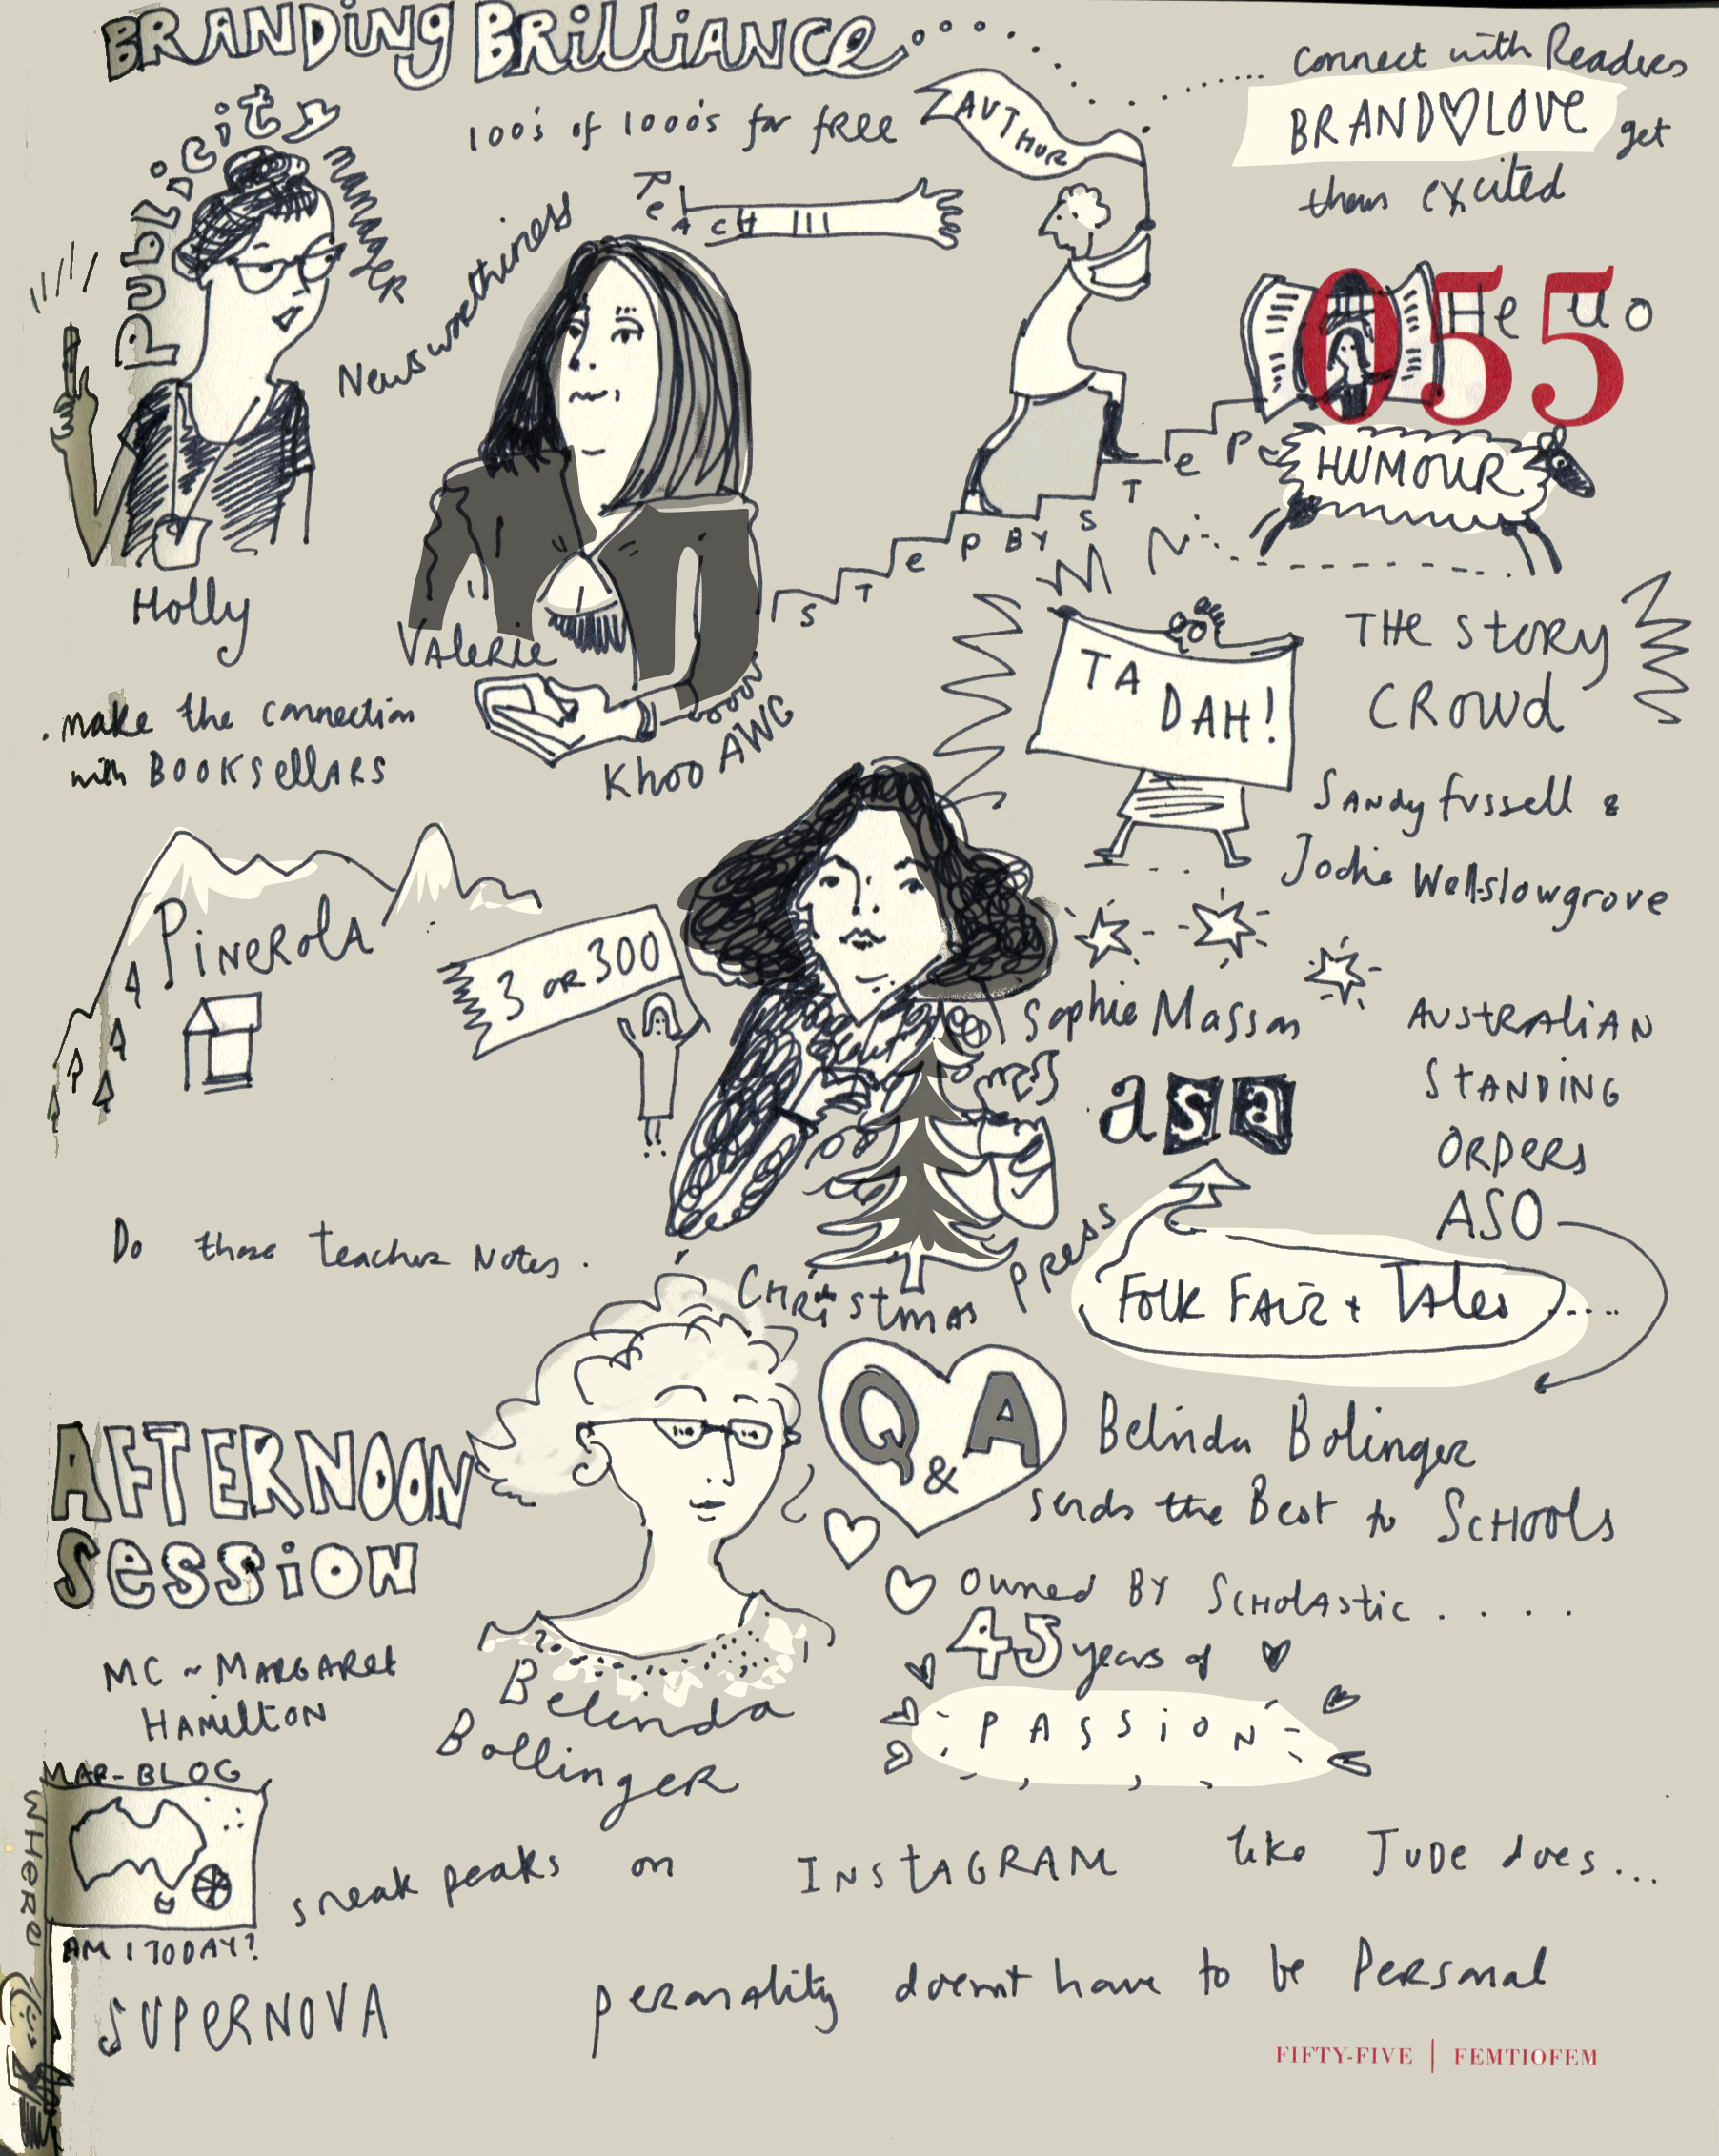 BRANDING BRILLIANCE
connect with Readers
BRAND LOVE get
them excited
100's of 1000's for free
AUTHOR
Publicity
manager
REACH
Newsworthiness
Hello
055
HUMOUR
STEP BY STEP
Holly
Valerie
Khoo AWC
.make the connection
with BOOKSELLARS
TA
DAH!
THE STORY
CROWD
SANDY fussell &
Jodie Wellslowgrove
PINEROLA
3 OR 300
Sophie Masson
asa
AUSTRALIAN
STANDING
ORDERS
ASO
Do those teacher Notes.
CHRISTMAS
PRESS
FOLK FAIR + TALES ....
AFTERNOON
SESSION
Q & A
Belinda Bolinger
sends the Best to SCHOOLS
owned BY SCHOLASTIC . . . .
45 years of
PASSION
MC ~ MARGARET
HAMILTON
Belinda
Bollinger
MAP-BLOG
WHERE
AM I TODAY?
sneak peaks on INSTAGRAM like JUDE does...
SUPERNOVA
personality doesn't have to be Personal
FIFTY-FIVE | FEMTIOFEM